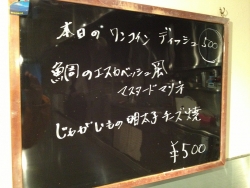 本日の ワンコイン ディッシュ 500
鯛のエスカベッシュ風
マスタードマリネ
じゃがいもの明太子チーズ焼
¥500